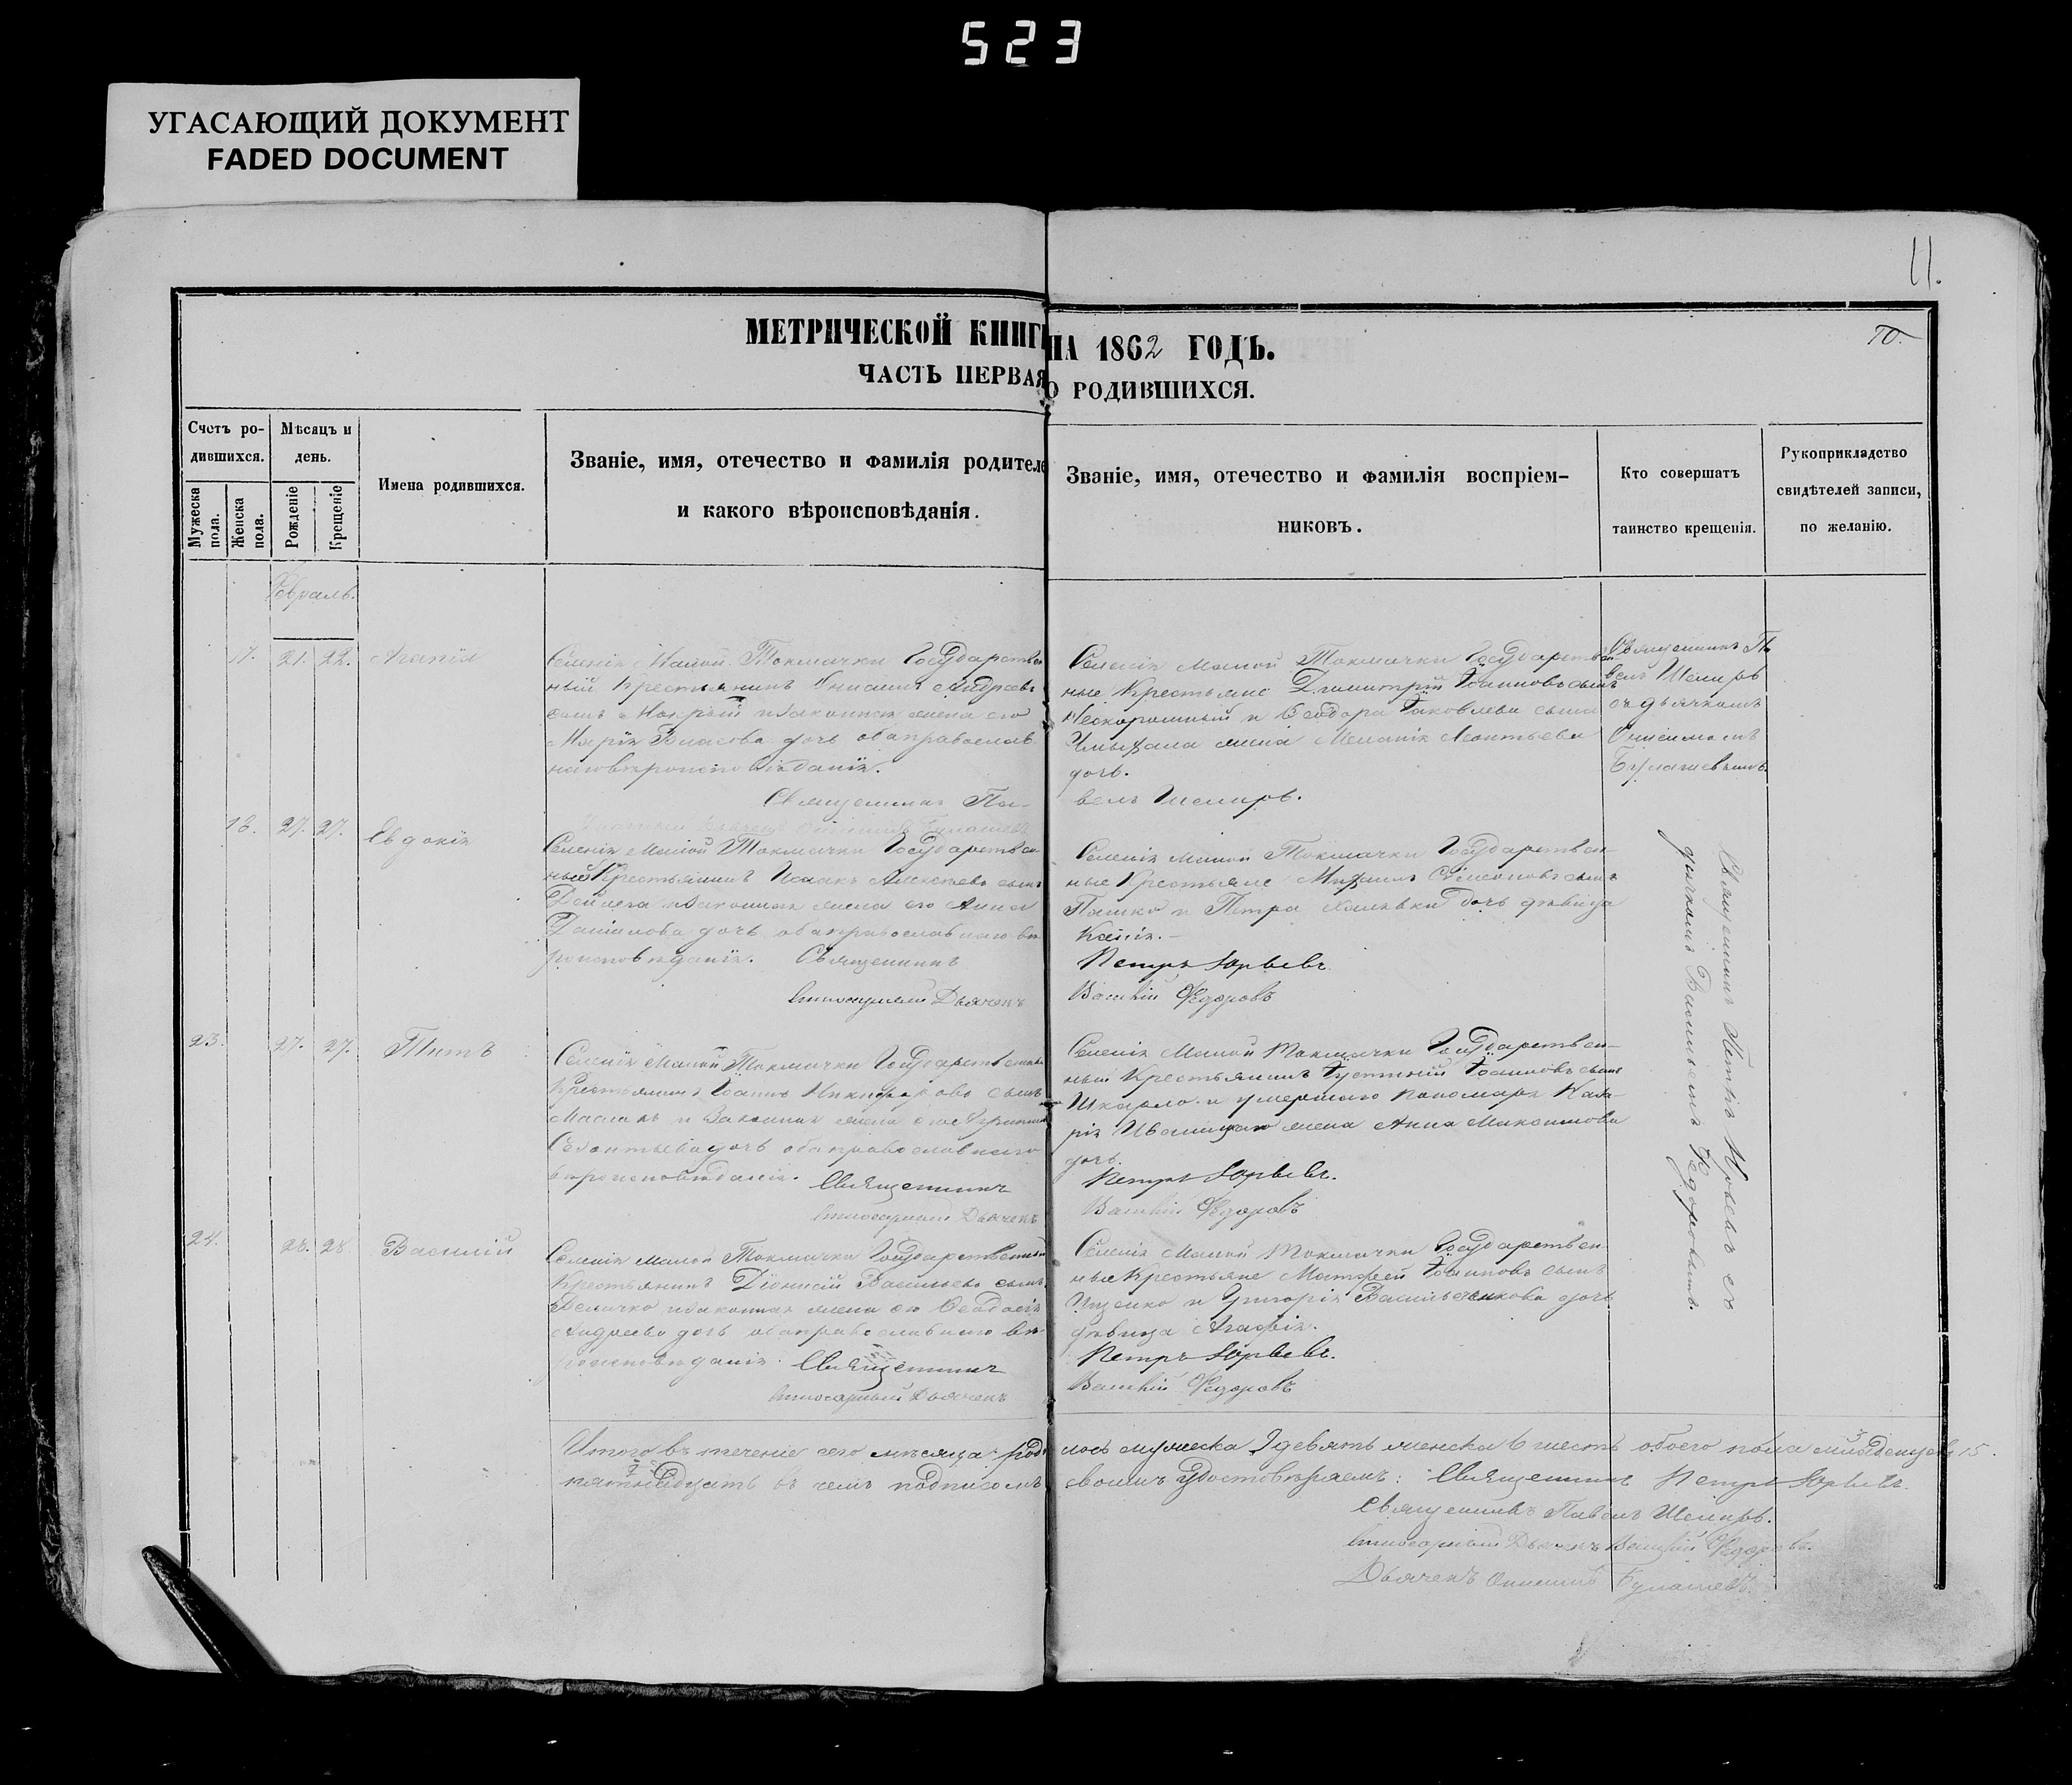 523
УГАСАЮЩИЙ ДОКУМЕНТ
FADED DOCUMENT
11.
МЕТРИЧЕСКОЙ КНИГИ НА 1862 ГОДЪ.
10.
ЧАСТЬ ПЕРВАЯ О РОДИВШИХСЯ.
Счетъ ро-
дившихся.
Мужеска пола.
Женска пола.
Мѣсяцъ и
день.
Рожденіе
Крещеніе
Имена родившихся.
Званіе, имя, отечество и фамилія родителе
и какого вѣроисповѣданія.
Званіе, имя, отечество и фамилія воспріем-
никовъ.
Кто совершатъ
таинство крещенія.
Рукоприкладство
свидѣтелей записи,
по желанію.
Февраль.
17. 21. 22. Агапія
Селенія Малой Токмачки Государствен
ный Крестьянинъ Онисимъ Андреевъ
сынъ Мокрый и законная жена его
Марія Власова дочь оба православ
наго вѣроисповѣданія.
Священникъ Па-
Селенія Малой Токмачки Государствен
ные Крестьяне Димитрій Іоанновъ сынъ
Нехорошный и Ѳеодора Яковлева сына
жена Меланія Леонтьева
дочь.
велъ Шемиръ.
Священникъ Па
велъ Шемиръ
съ дьячкомъ
Онисимомъ
Булашевымъ.
18. 27. 27. Евдокія
Селенія Малой Токмачки Государствен
ный Крестьянинъ Исаакъ Алексѣевъ сынъ
и законная жена его Анна
Данилова дочь оба православнаго вѣ
роисповѣданія. Священникъ
Дьячекъ
Селенія Малой Токмачки Государствен-
ные Крестьяне Михаилъ Симеоновъ сынъ
Пашко и Петра дочь дѣвица
Ксенія.
Петръ Юрьевъ
Василій Федоровъ
23. 27. 27. Титъ
Селенія Малой Токмачки Государственный
Крестьянинъ Іоаннъ Никифоровъ сынъ
Маслакъ и законная жена его
Леонтьева дочь оба православнаго
вѣроисповѣданія. Священникъ
Дьячекъ
Селенія Малой Токмачки Государствен-
ный Крестьянинъ Іустинъ Іоанновъ сынъ
Шкарло и умершаго пономаря Наза-
рія Иваницкаго жена Анна Максимова
дочь.
Петръ Юрьевъ.
Василій Федоровъ
24. 28. 28. Василій
Селенія Малой Токмачки Государственный
Крестьянинъ Діонисій Васильевъ сынъ
Величко и законная жена его Ѳеодосія
Андреева дочь оба православнаго вѣ-
роисповѣданія. Священникъ
Дьячекъ
Селенія Малой Токмачки Государствен
ные Крестьяне Матфей Іоанновъ сынъ
и Григорія Васильченкова дочь
дѣвица Агафія.
Петръ Юрьевъ.
Василій Федоровъ
Священникъ Петръ Юрьевъ съ
дьячкомъ Василіемъ Федоровымъ.
Итого въ теченіе сего мѣсяца роди лось мужеска 9 девять женска 6 шесть обоего пола младенцевъ 15.
пятнадцать въ чемъ подписомъ своимъ удостовѣряемъ: Священникъ Петръ Юрьевъ.
Священникъ Павелъ Шемиръ.
Дьячекъ Василій Федоровъ.
Дьячекъ Онисимъ Булашевъ.